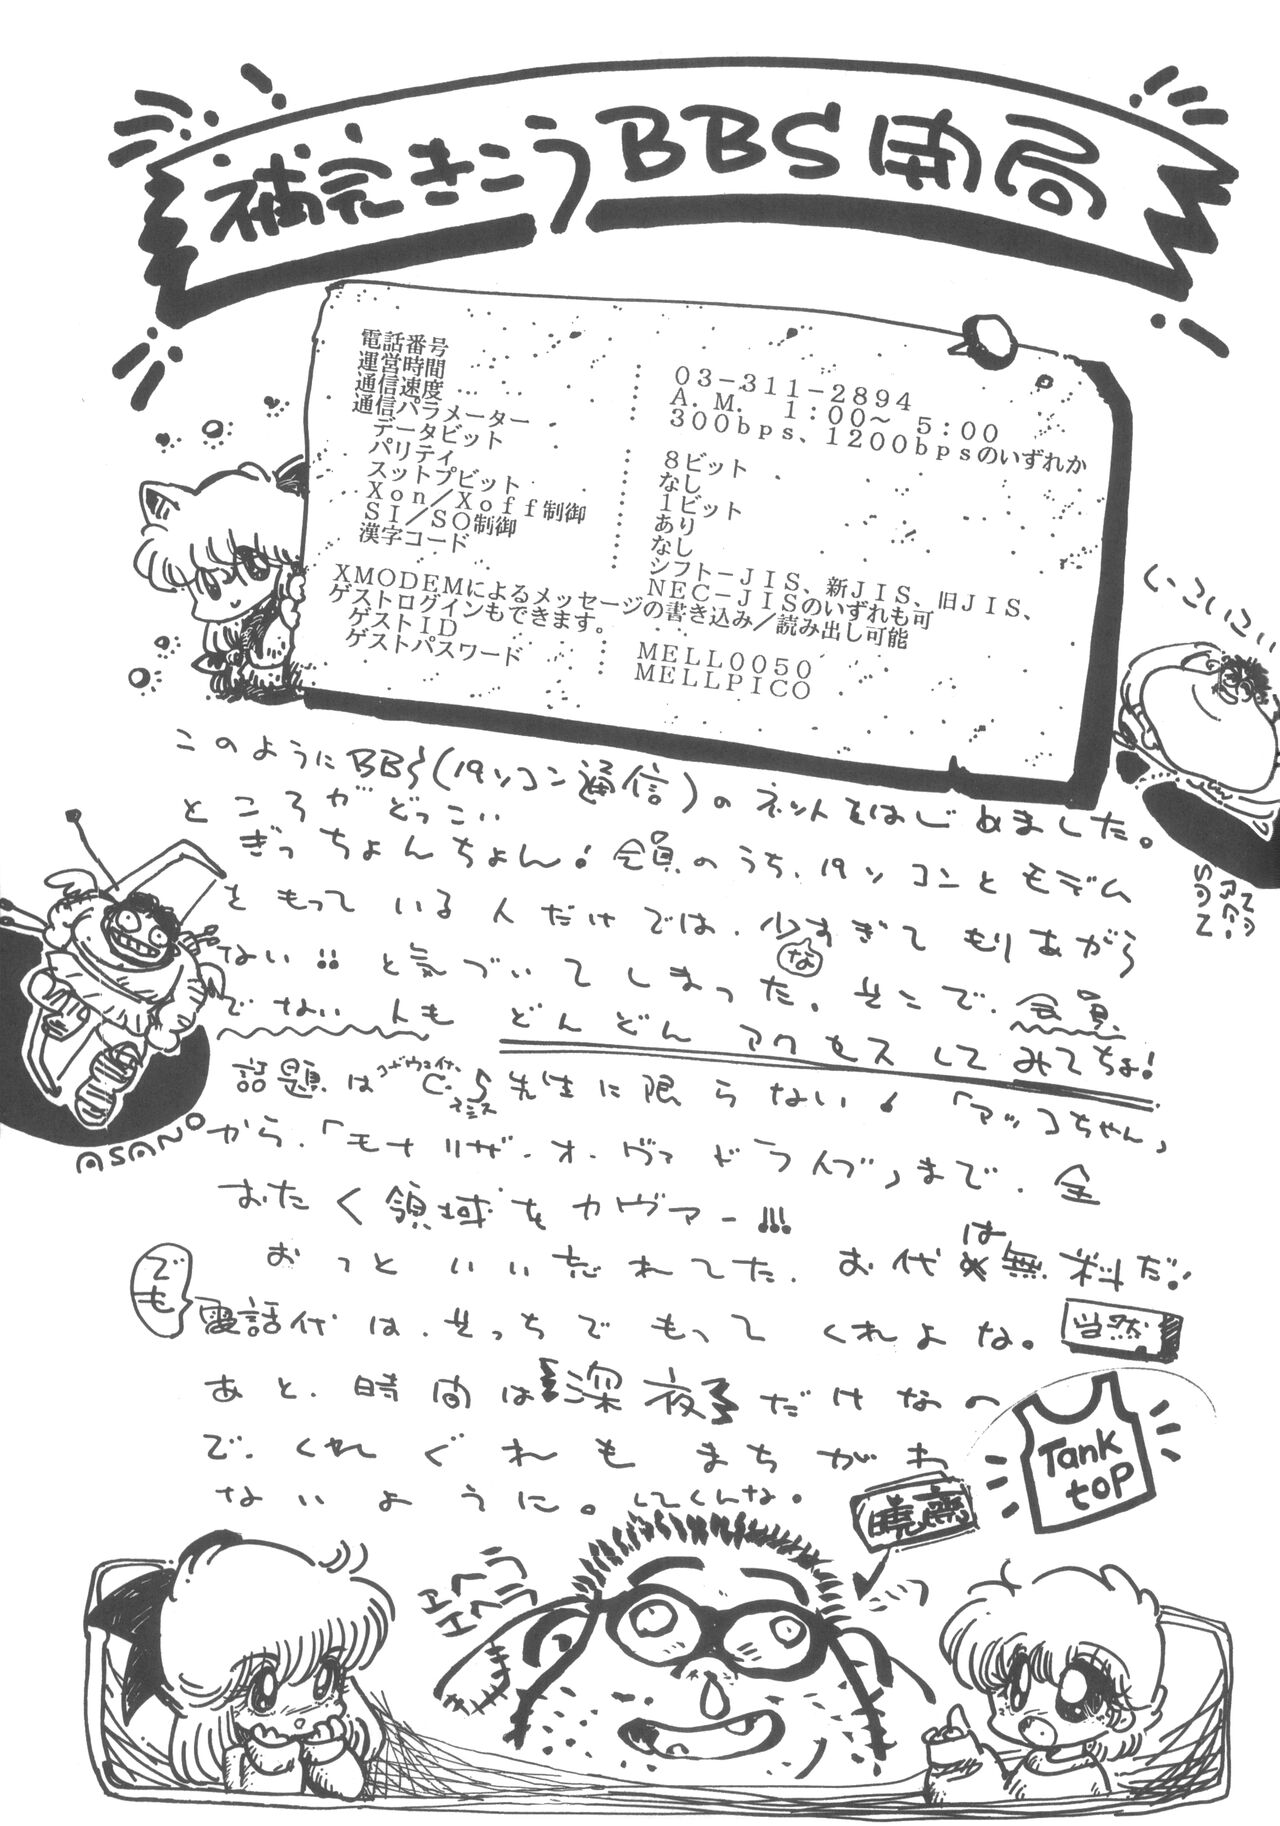 補完きこうBBS開局
電話番号 : 03-311-2894
運営時間 : A.M. 1:00~ 5:00
通信速度 … : 300bps、1200bpsのいずれか
通信パラメーター
データビット : 8ビット
パリティ : なし
スットプビット : 1ビット
Xon/Xoff制御 : あり
SI/SO制御 : なし
漢字コード : シフト-JIS、新JIS、旧JIS、
NEC-JISのいずれも可
XMODEMによるメッセージの書き込み/読み出し可能
ゲストログインもできます。
ゲストID : MELL0050
ゲストパスワード : MELLPICO
このようにBBS(パソコン通信)のネットをはじめました。
ところがどっこい
ぎっちょんちょん!会員のうち、パソコンとモデム
をもっている人だけでは、少なすぎてもりあがら
ない!!と気づいてしまった。そこで、会員
でない人もどんどんアクセスしてみてちょ!
話題はC・S先生に限らない!「アッコちゃん」
から、「モナリザ・オ・ヴァドライブ」まで、全
おたく領域をカヴァー!!!
おっといい忘れてた、お代は無料だ!
でも
電話代は、そっちでもってくれよな。当然
あと、時間は深夜だけなの
で、くれぐれもまちがわ
ないように。してくんな。
ASANO
Tank
top
エヘラ
エヘラ